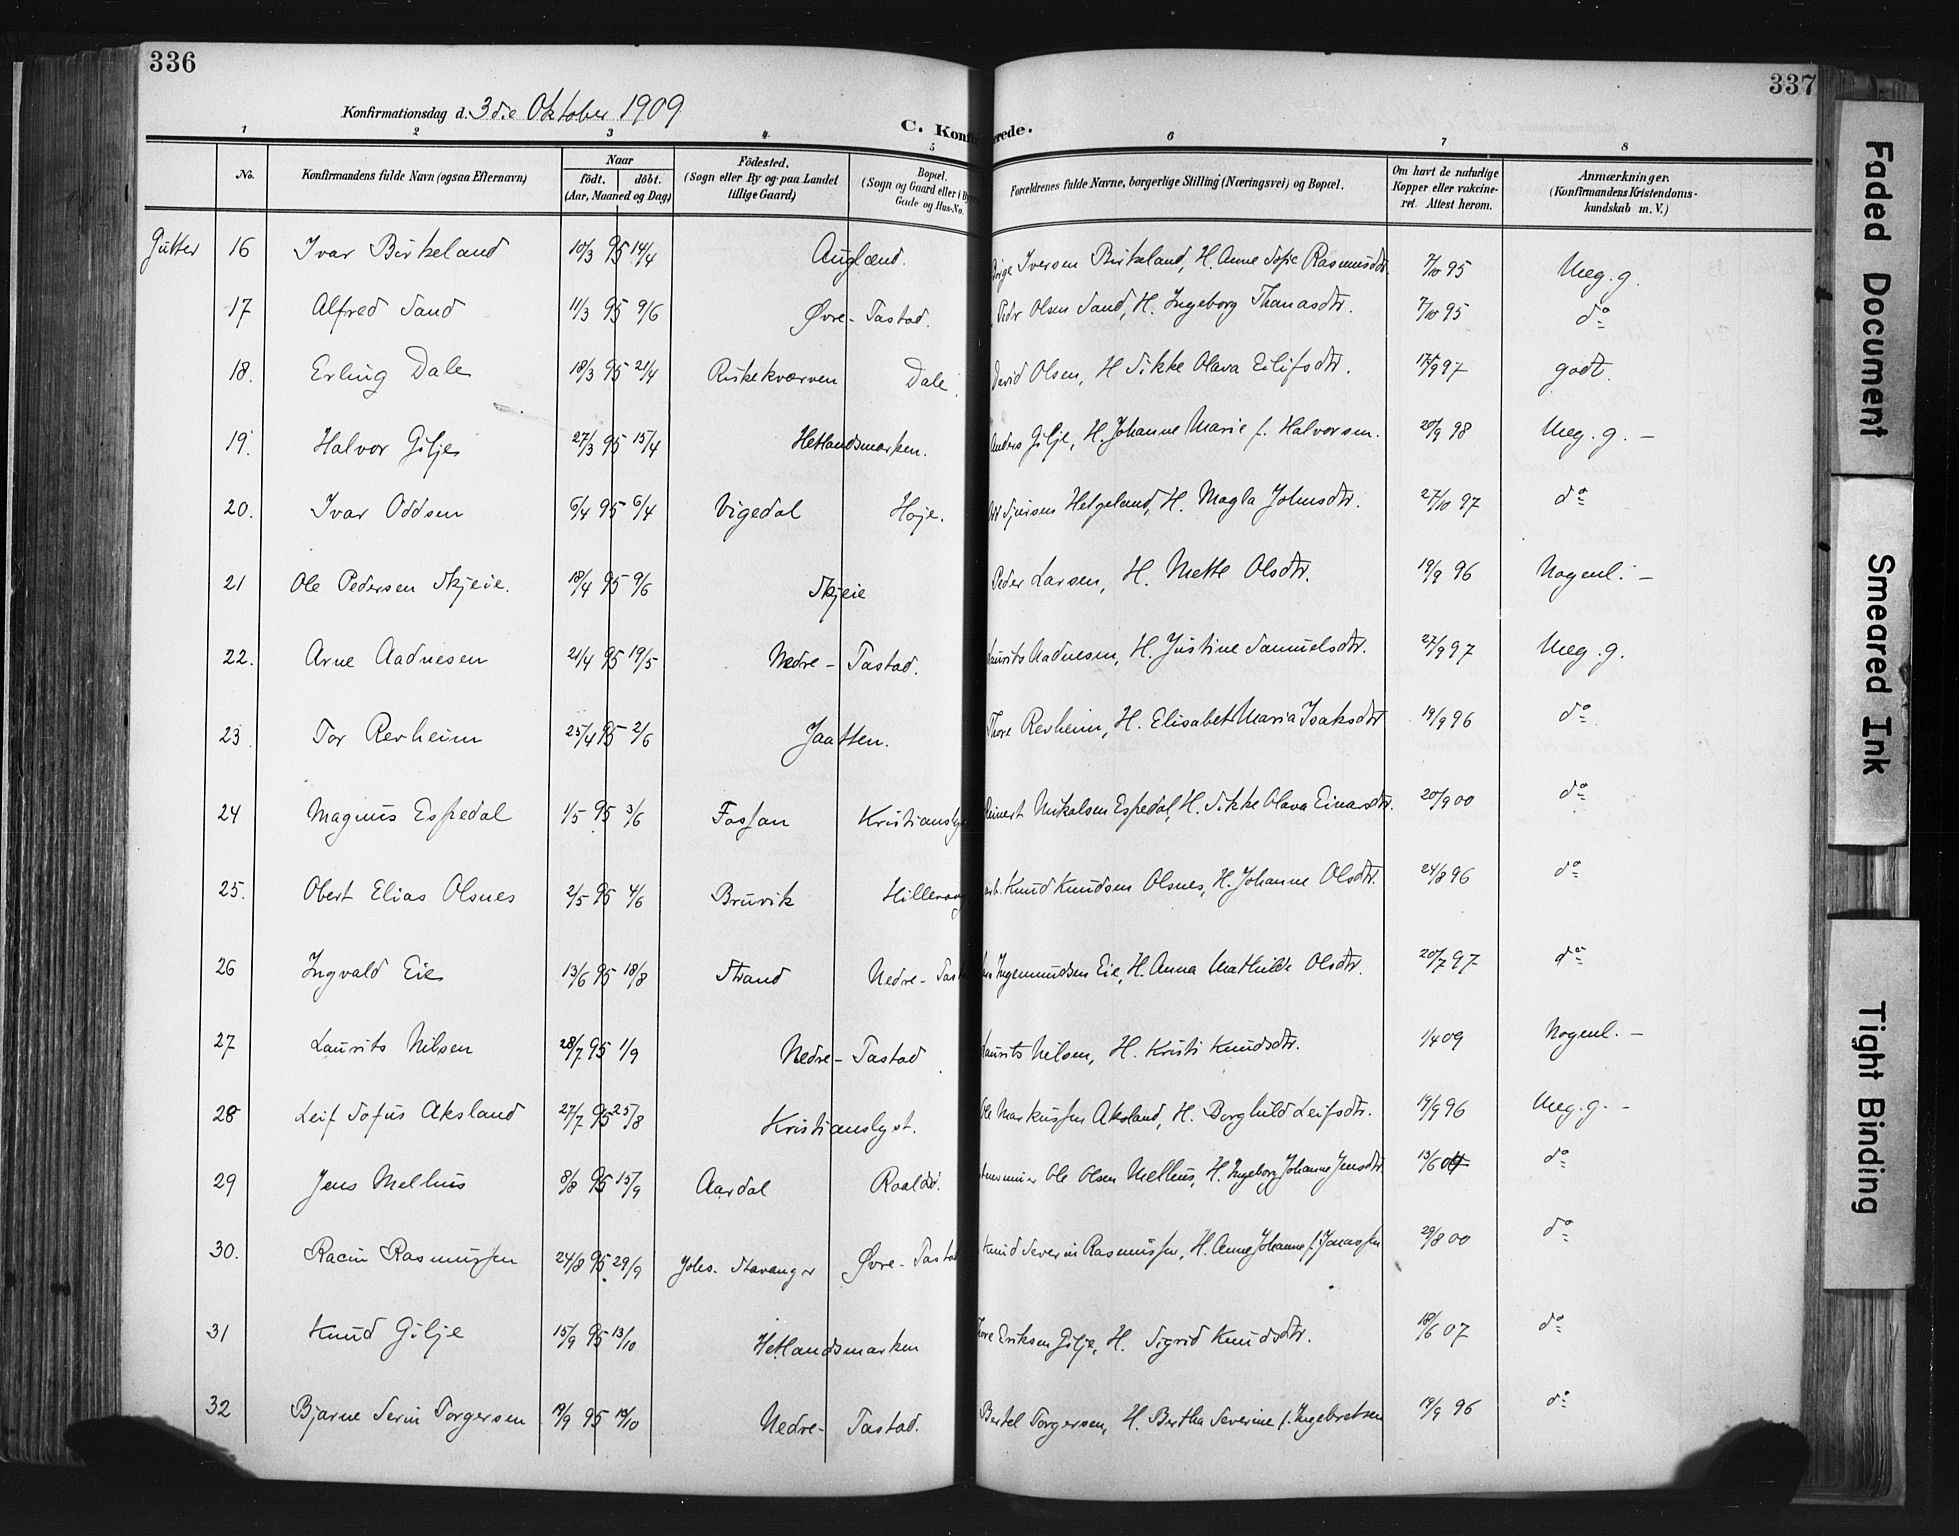 336
337
Konfirmationsdag d. 3die Oktober 1909
C. Konfi rerede.
1 2 3 4 5 6 7 8
No. Konfirmandens fulde Navn (ogsaa Efternavn) Naar födt. döbt. (Aar, Maaned og Dag) Födested. (Sogn eller By og paa Landet tillige Gaard) Bopæl. (Sogn og Gaard eller i By Gade og Hus-No. Forældrenes fulde Navne, borgerlige Stilling (Næringsvei) og Bopæl. Om havt de naturlige Kopper eller vakcineret. Attest herom. Anmærkninger. (Konfirmandens Kristendomskundskab m. V.)
Gutter 16 Ivar Birkeland 10/3 95 14/4 Auglænd. Iversen Birkeland, H. Anne Sofie Rasmusdtr. 7/10 95 Meg. g.
17 Alfred Sand 11/3 95 9/6 Øvre - Tastad. Peder Olsen Sand, H. Ingeborg Thomasdtr. 7/10 95 do
18. Erling Dale 18/3 95 21/4 Riskekværven Dale. David Olsen, H. Sikke Olava Eilifsdtr. 17/9 97 godt.
19. Halvor Gilje 27/3 95 15/4 Hetlandsmarken. Anders Gilje, H. Johanne Marie f. Halvorsen. 20/9 98 Meg. g. -
20. Ivar Oddsen 6/4 95 6/4 Vigedal Høje. Sjursen Helgeland, H. Magla Johnsdtr. 27/10 97 do
21 Ole Pedersen Skjeie. 18/4 95 9/6 Skjeie Peder Larsen, H. Mette Olsdtr. 19/9 96 Nogenl. -
22. Arne Aadnesen 21/4 95 19/5 Nedre - Tastad. Laurits Aadnesen, H. Justine Samuelsdtr. 27/9 97 Meg. g.
23. Tor Revheim 25/4 95 2/6 Jaatten. Thore Revheim, H. Elisabet Maria Isaksdtr 19/9 96 do
24 Magnus Espedal 1/5 95 3/6 Fossan Kristianslyst Reinert Nikolsen Espedal, H. Sikke Olava Einarsdtr. 20/9 00 do
25. Obert Elias Olsnes 2/5 95 4/6 Bruvik Hillevaag arb. Knud Knudsen Olsnes, H. Johanne Olsdtr. 24/8 96 do
26 Ingvald Eie 13/6 95 18/8 Strand Nedre - Tast Ingemundsen Eie, H. Anna Mathilde Olsdtr. 20/7 97 do
27 Laurits Nilsen 28/7 95 1/9 Nedre - Tastad Laurits Nilsen, H. Kristi Knudsdtr. 1/4 09 Nogenl. -
28 Leif Sofus Aksland 27/7 95 25/8 Kristianslyst. Ole Markussen Aksland, H. Borghild Leifsdtr. 19/9 96 Meg. g. -
29 Jens Melhus 8/8 95 15/9 Aardal Roaldsø. Ole Olsen Melhus, H. Ingeborg Johanne Jensdtr. 13/6 04 do
30. Racin Rasmussen 24/8 95 29/9 Johs. Stavanger Øvre - Tastad Knud Severin Rasmussen, H. Anne Johanne f. Jonassen 29/8 00 do
31 Knud Gilje 15/9 95 13/10 Hetlandsmarken Thore Eriksen Gilje, H. Sigrid Knudsdtr. 18/6 07 do
32 Bjarne Serin Torgersen 19/9 95 13/10 Nedre - Tastad. Bertel Torgersen, H. Bertha Severine f. Ingebretsen 19/9 96 do
Faded Document
Smeared Ink
Tight Binding